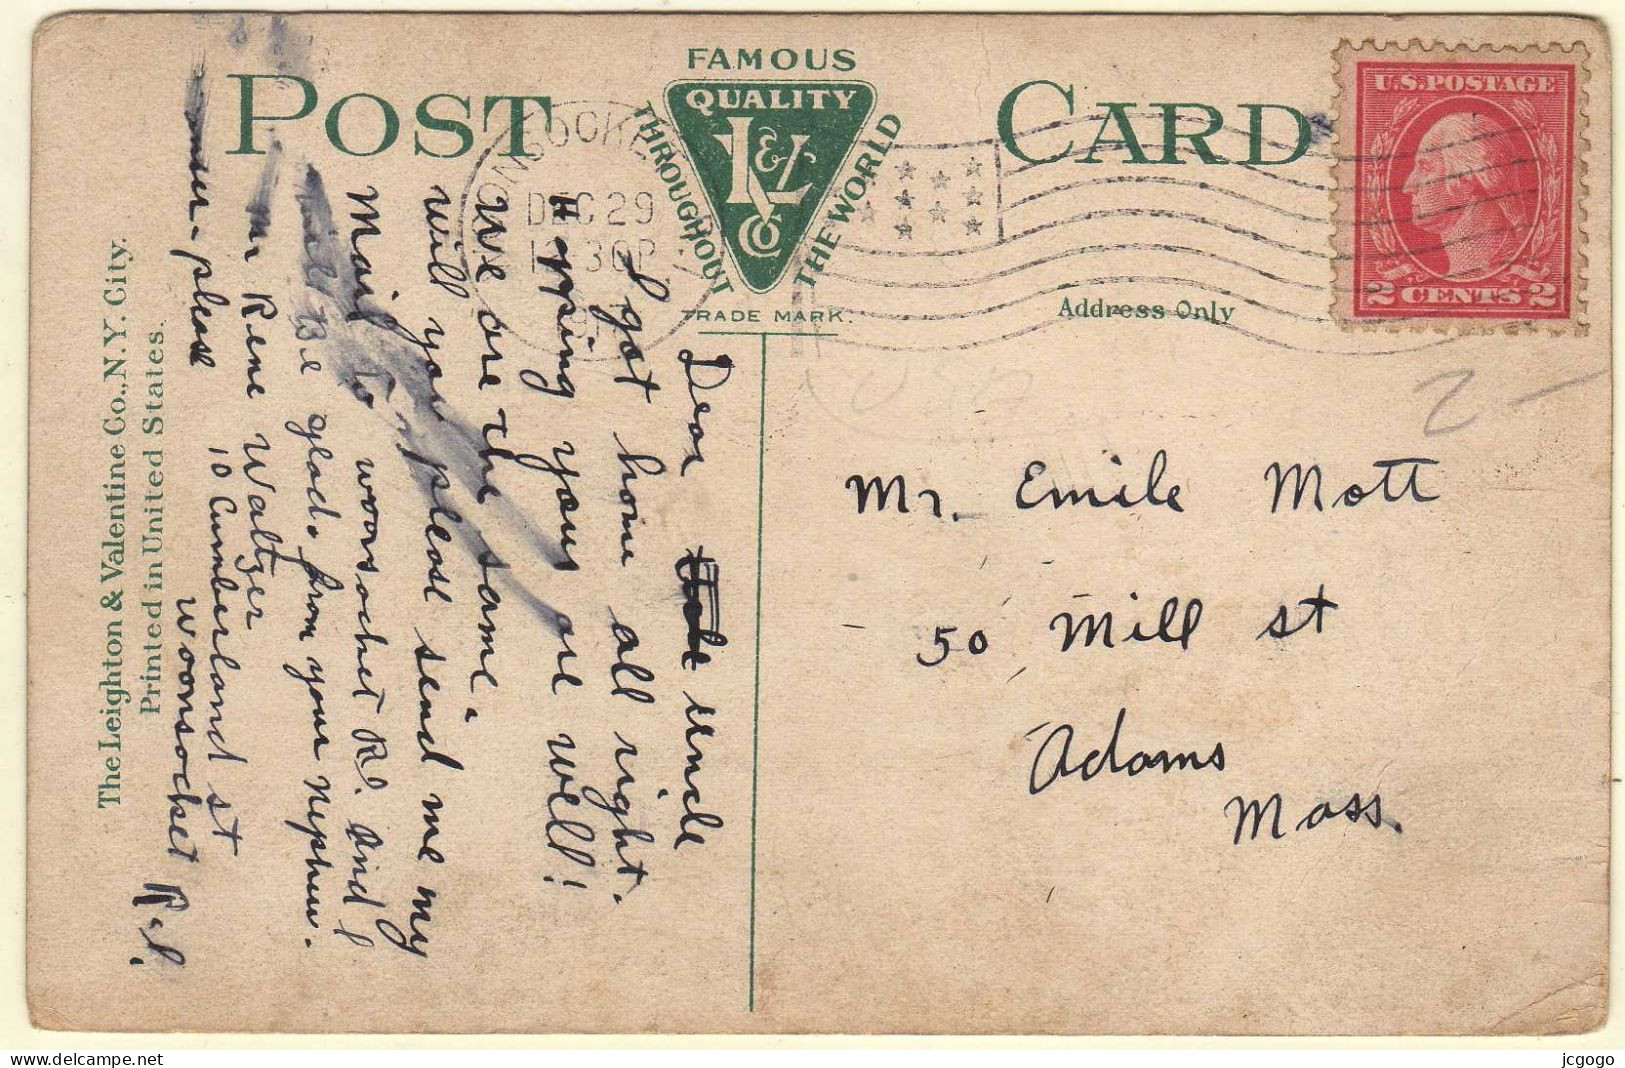 POST CARD
FAMOUS
QUALITY
L&V
CO
THROUGHOUT
THE WORLD
TRADE MARK.
Address Only
U.S. POSTAGE
2 CENTS 2
WOONSOCKET
DEC 29
30P
2 -
Mr. Emile Mott
50 Mill st
Adams
Mass.
Dear uncle
I got home all right.
H opping yous are well!
We are the same.
will you please send me my
Mail to woonsocket R.I. and I
will Be glad. from your Nephew.
mr Rene Waltzer
10 Cumberland st
Woonsocket R.I.
answer - please
The Leighton & Valentine Co., N.Y. City.
Printed in United States.
jcgogo